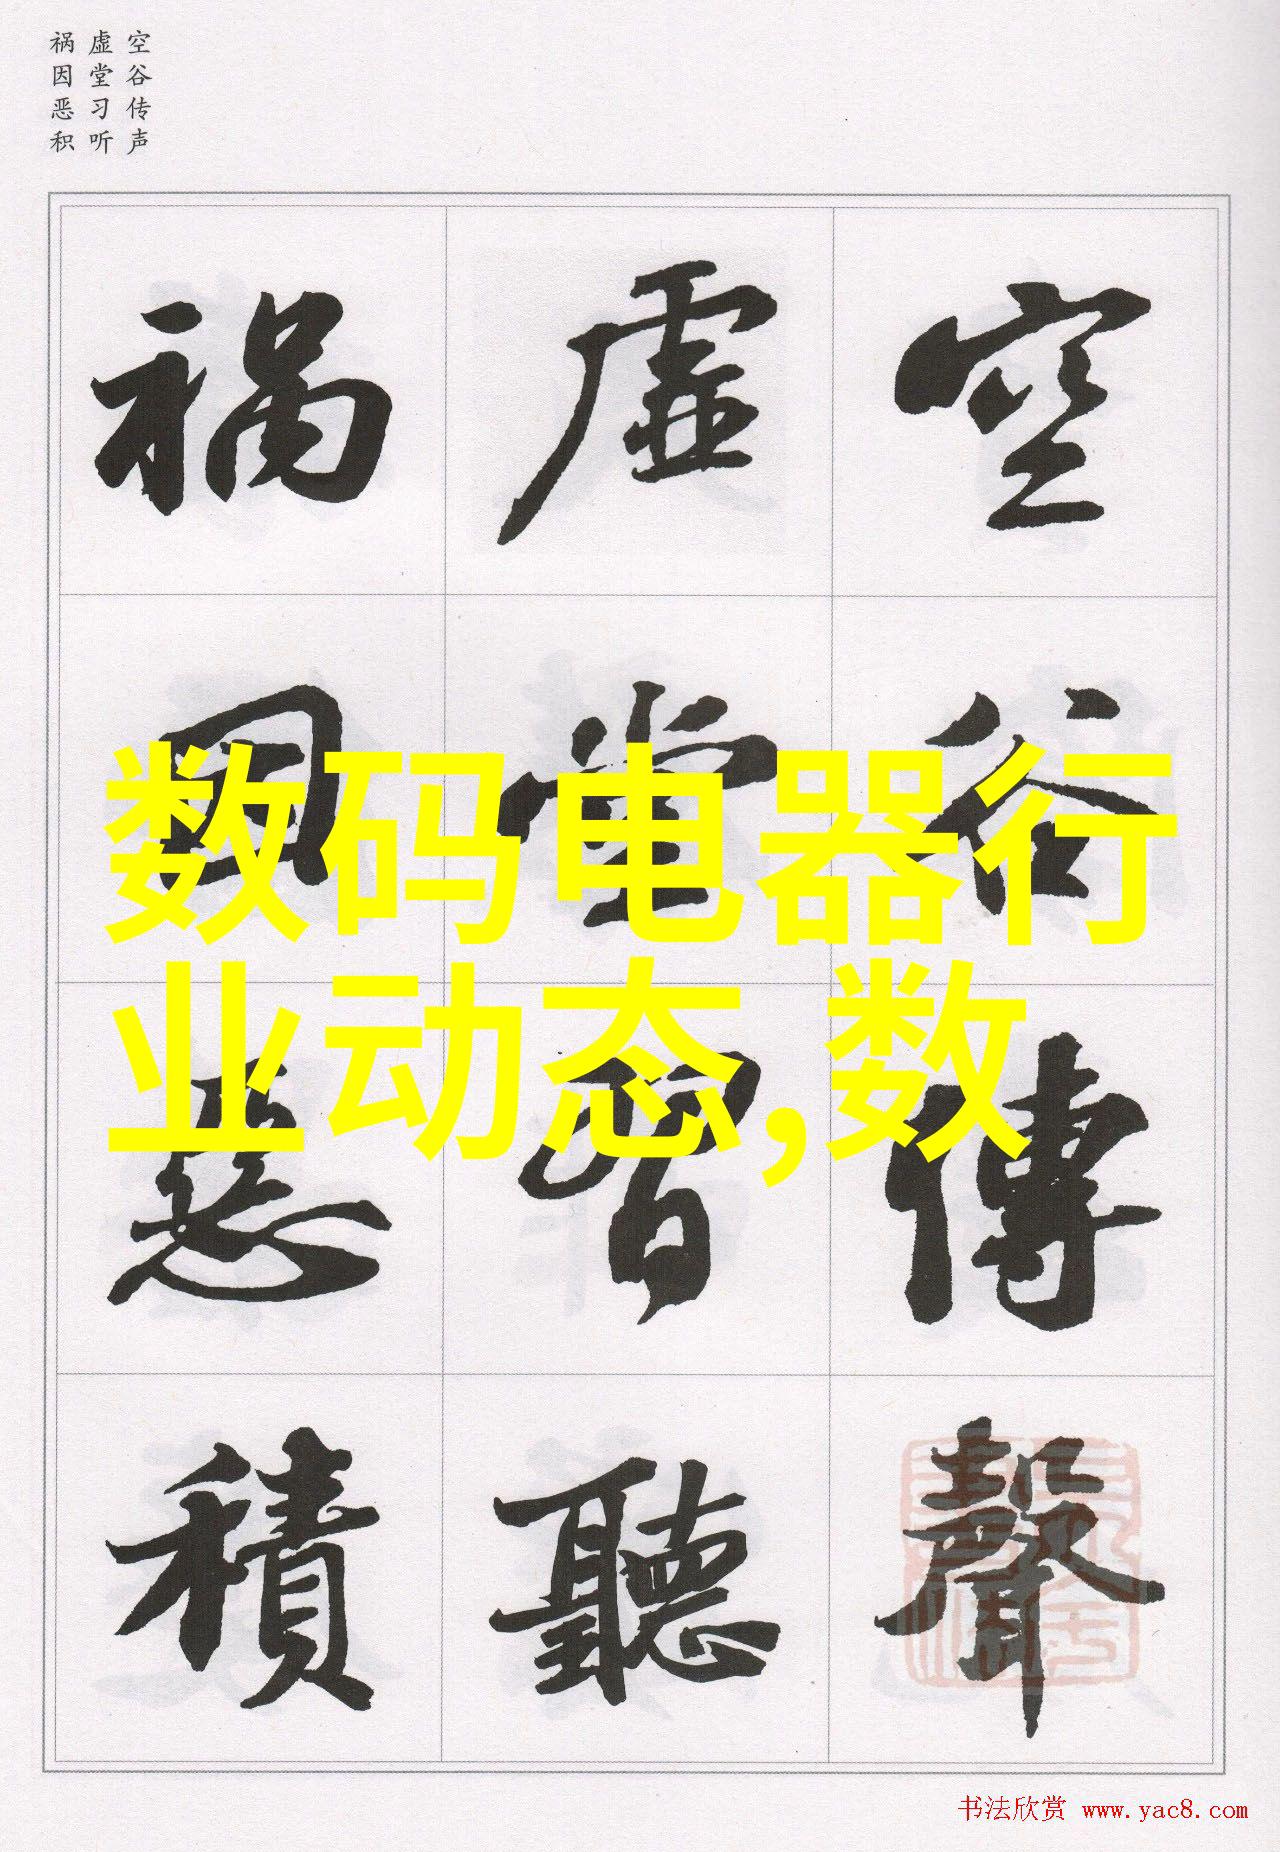 空谷传声
虚堂习听
祸因恶积
空谷傳聲
虚堂習聽
禍因惡積
数码电器行
业动态,数
书法欣赏 www.yac8.com